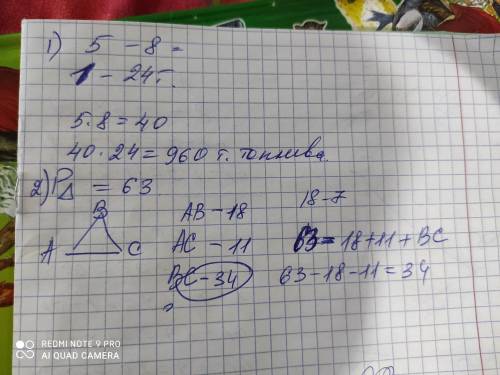 1) 5 - 8 =
1 - 24т.
5·8=40
40·24=960 т. топлива.
2) P△ = 63
B
A C
AB - 18
AC - 11
BC - 34
?
18-7
63=18+11+BC
63-18-11=34
REDMI NOTE 9 PRO
AI QUAD CAMERA